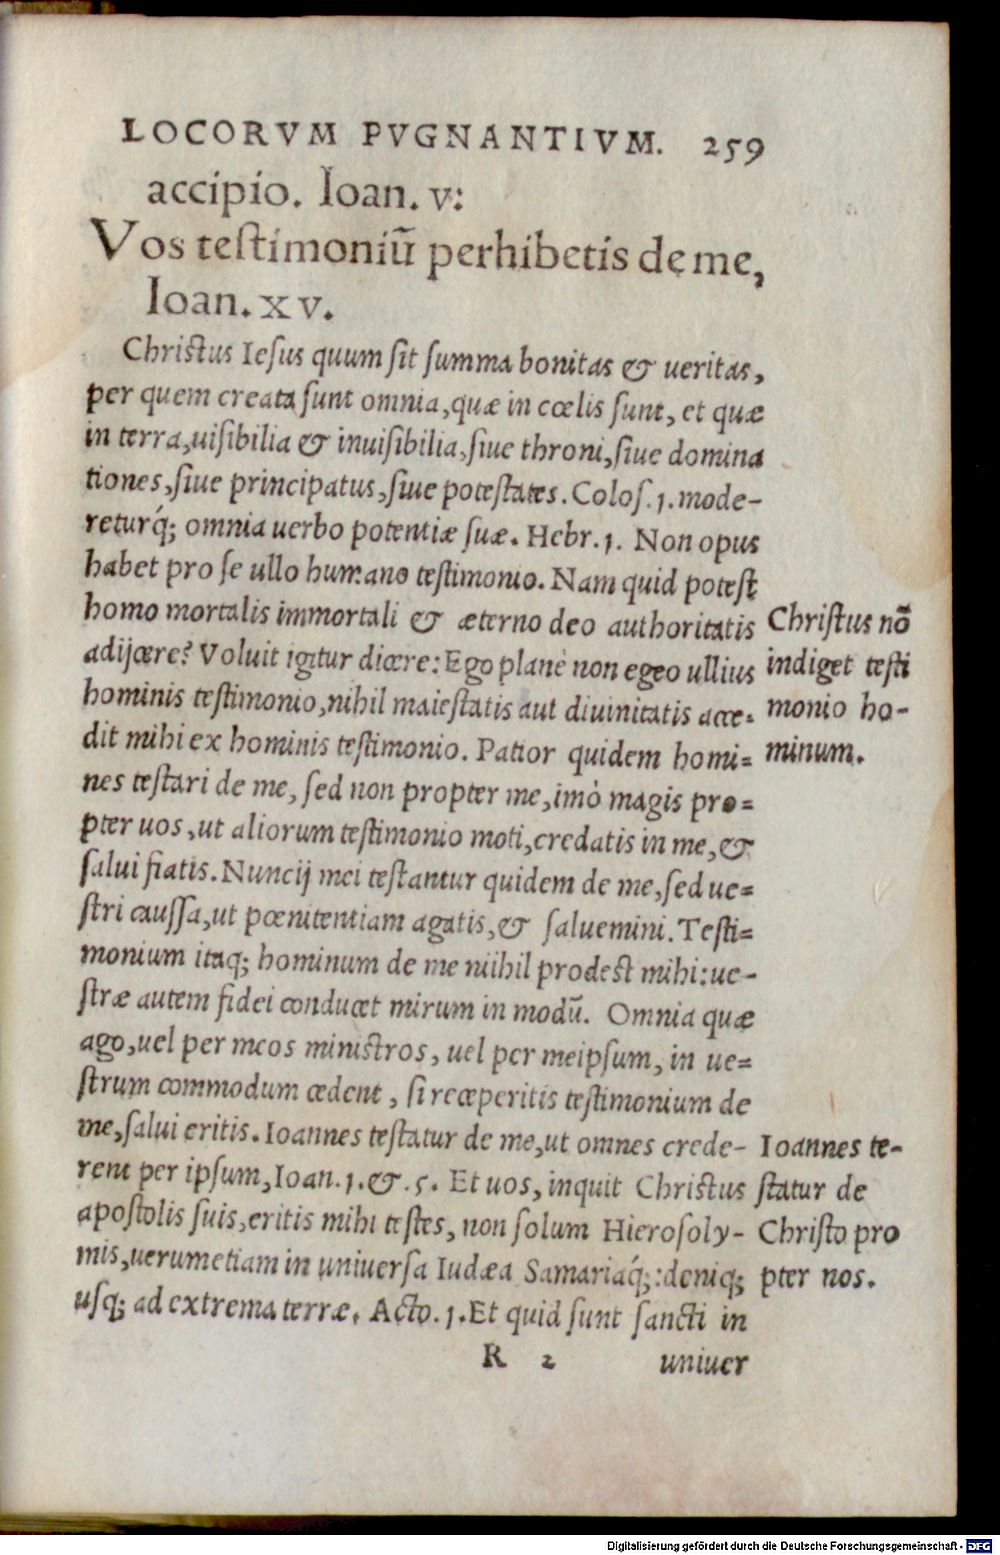 LOCORVM PVGNANTIVM. 259
accipio. Ioan. v:
Vos testimoniū perhibetis de me,
Ioan. xv.
Christus Iesus quum sit summa bonitas & ueritas,
per quem creata sunt omnia, quæ in cœlis sunt, et quæ
in terra, uisibilia & inuisibilia, siue throni, siue domina
tiones, siue principatus, siue potestates. Colos. 1. mode-
returq́; omnia uerbo potentiæ suæ. Hebr. 1. Non opus
habet pro se ullo humano testimonio. Nam quid potest
homo mortalis immortali & æterno deo authoritatis
adijcere? Voluit igitur dicere: Ego planè non egeo ullius
hominis testimonio, nihil maiestatis aut diuinitatis acce-
dit mihi ex hominis testimonio. Patior quidem homi=
nes testari de me, sed non propter me, imò magis pro=
pter uos, ut aliorum testimonio moti, credatis in me, &
salui fiatis. Nuncij mei testantur quidem de me, sed ue=
stri caussa, ut pœnitentiam agatis, & saluemini. Testi=
monium itaq; hominum de me nihil prodest mihi: ue-
stræ autem fidei conducet mirum in modū. Omnia quæ
ago, uel per meos ministros, uel per meipsum, in ue=
strum commodum cedent, si receperitis testimonium de
me, salui eritis. Ioannes testatur de me, ut omnes crede-
rent per ipsum, Ioan. 1. &. 5. Et uos, inquit Christus
apostolis suis, eritis mihi testes, non solum Hierosoly-
mis, uerumetiam in uniuersa Iudæa Samariaq́;: deniq;
usq; ad extrema terræ. Acto. 1. Et quid sunt sancti in
R 2 uniuer
Christus nō
indiget testi
monio ho-
minum.
Ioannes te-
statur de
Christo pro
pter nos.
Digitalisierung gefördert durch die Deutsche Forschungsgemeinschaft - DFG